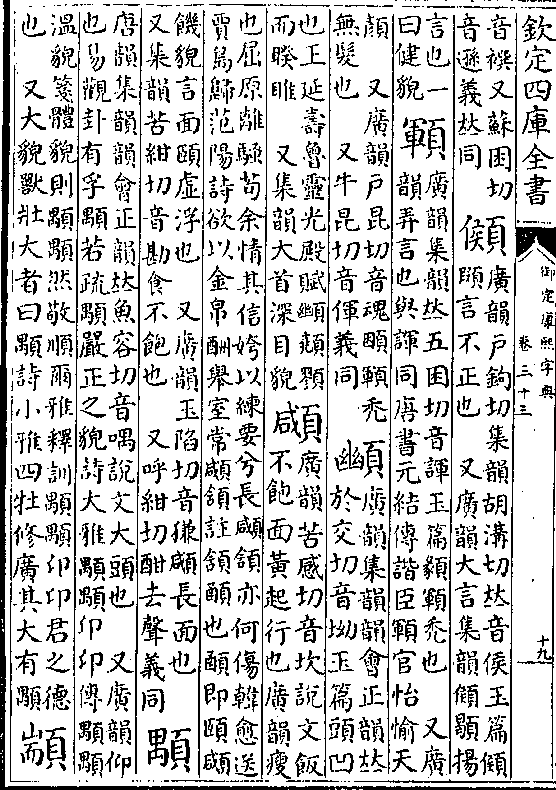 欽定四庫全書
御定康熙字典
卷三十三
十九
音禩又蘇困切
音遜義𠀤同
䫛
廣韻戶鉤切集韻胡溝切𠀤音侯玉篇䫛
頤言不正也 又廣韻大言集韻䫛顒揚
言也一
曰健貌
顐
廣韻集韻𠀤五困切音諢玉篇䫟顐禿也 又廣
韻弄言也與諢同唐書元結傳諧臣顐官怡愉天
顏 又廣韻戶昆切音魂頤顐禿
無髮也 又牛昆切音倱義同
䫜
廣韻集韻韻會正韻𠀤
於交切音坳玉篇頭凹
也王延壽魯靈光殿賦䫜顟顤
而睽睢 又集韻大首深目貌
顑
廣韻苦感切音坎說文飯
不飽面黃起行也廣韻瘦
也屈原離騷苟余情其信姱以練要兮長顑頷亦何傷韓愈送
賈島歸范陽詩欲以金帛酬舉室常顑頷註頷顄也顄即頤顑
饑貌言面頤虛浮也 又廣韻玉陷切音㺌顑長面也
又集韻苦紺切音勘食不飽也 又呼紺切酣去聲義同
顒
唐韻集韻韻會正韻𠀤魚容切音喁說文大頭也 又廣韻仰
也易觀卦有孚顒若疏顒嚴正之貌詩大雅顒顒卬卬傳顒顒
溫貌箋體貌則顒顒然敬順爾雅釋訓顒顒卬卬君之德
也 又大貌獸壯大者曰顒詩小雅四牡修廣其大有顒
顓